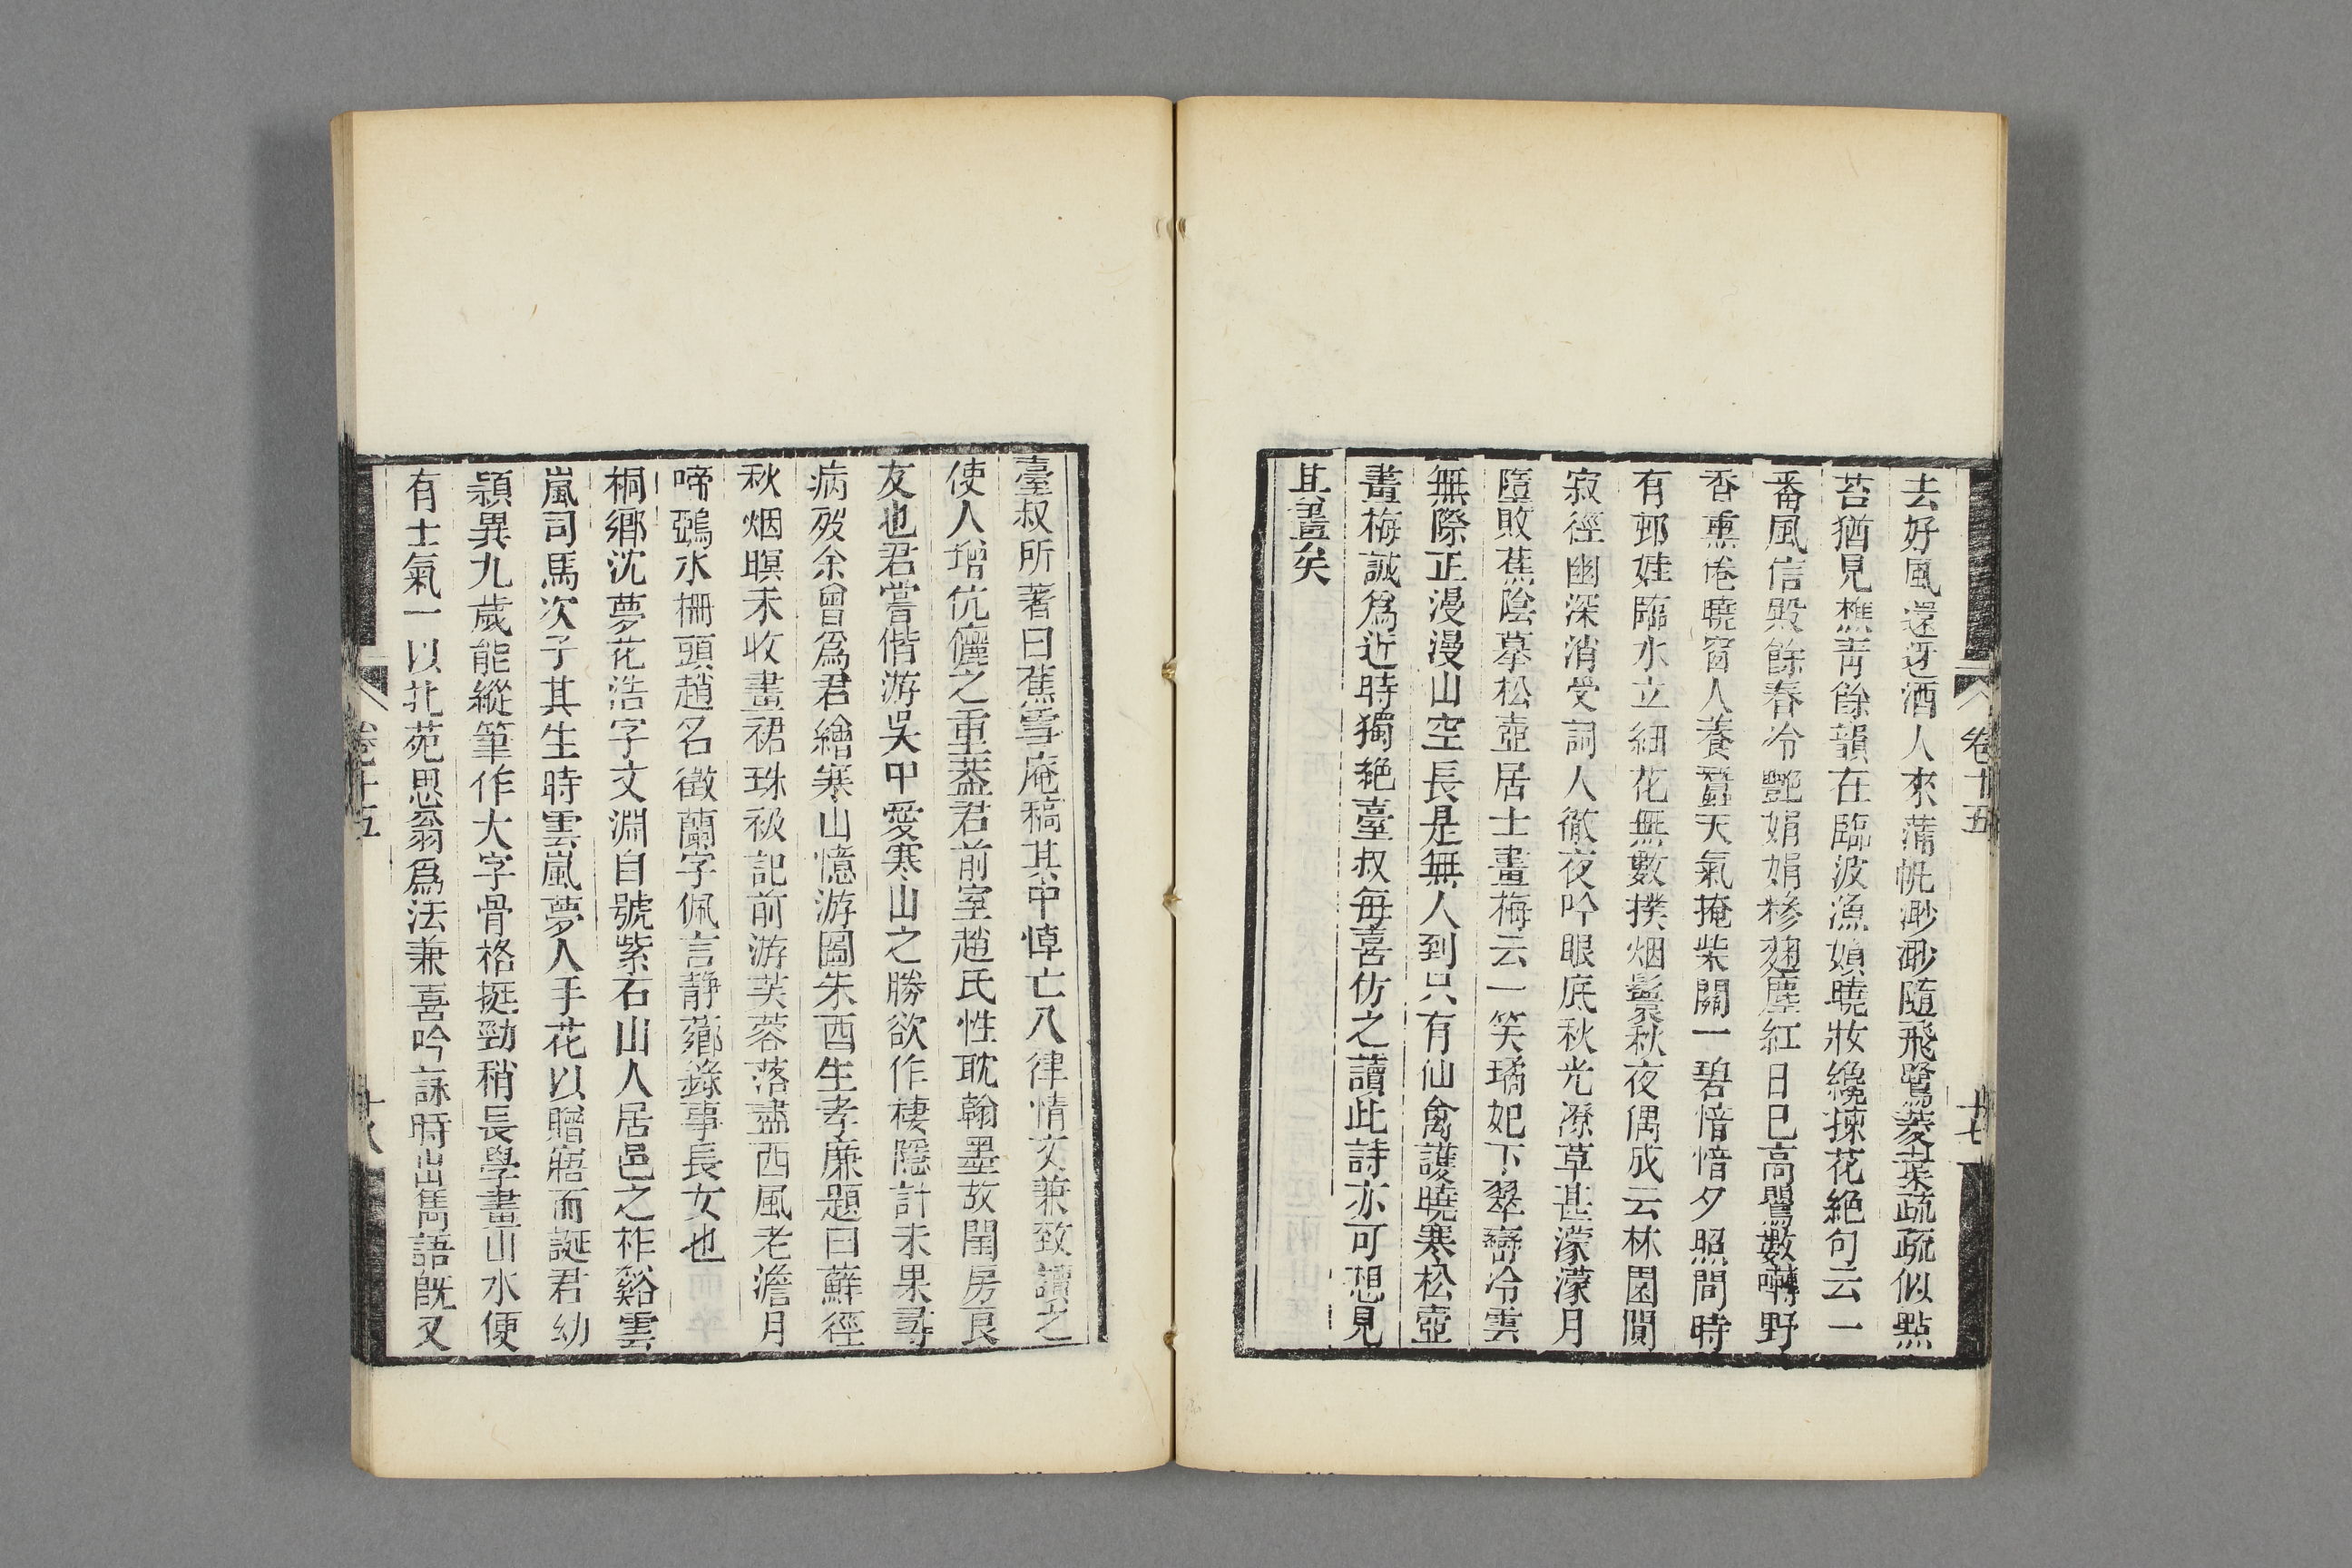 去好風還迓酒人來蒲帆渺渺隨飛鷺菱葉疏疏似點
苔猶見樵青餘韻在臨波漁嬾曉妝纔揀花絶句云一
番風信殿餘春冷艷娟娟糝麹塵紅日巳高鶯數囀野
香熏倦曉窗人養蠶天氣掩柴關一碧愔愔夕照間時
有邨娃臨水立細花無數撲烟鬟秋夜偶成云林園閒
寂徑幽深消受詞人徹夜吟眼底秋光潦草甚濛濛月
墮敗蕉陰摹松壺居士畫梅云一笑璚妃下翠巒冷雲
無際正漫漫山空長是無人到只有仙禽護曉寒松壺
畫梅誠爲近時獨絶臺叔每喜仿之讀此詩亦可想見
其畫矣
卷十五
十七
臺叔所著曰蕉雪庵稿其中悼亡八律情文兼致讀之
使人增伉儷之重葢君前室趙氏性耽翰墨故閨房良
友也君嘗偕游吳中愛寒山之勝欲作棲隱計未果尋
病歿余曾爲君繪寒山憶游圖朱酉生孝廉題曰蘚徑
秋烟暝未收畫裙珠衱記前游芙蓉落盡西風老澹月
啼鵶水柵頭趙名徵蘭字佩言靜薌錄事長女也
桐鄉沈夢花浩字文淵自號紫石山人居邑之柞谿雲
嵐司馬次子其生時雲嵐夢人手花以贈寤而誕君幼
穎異九歲能縱筆作大字骨格挺勁稍長學畫山水便
有士氣一以北苑思翁爲法兼喜吟詠時出雋語旣又
卷十五
十八